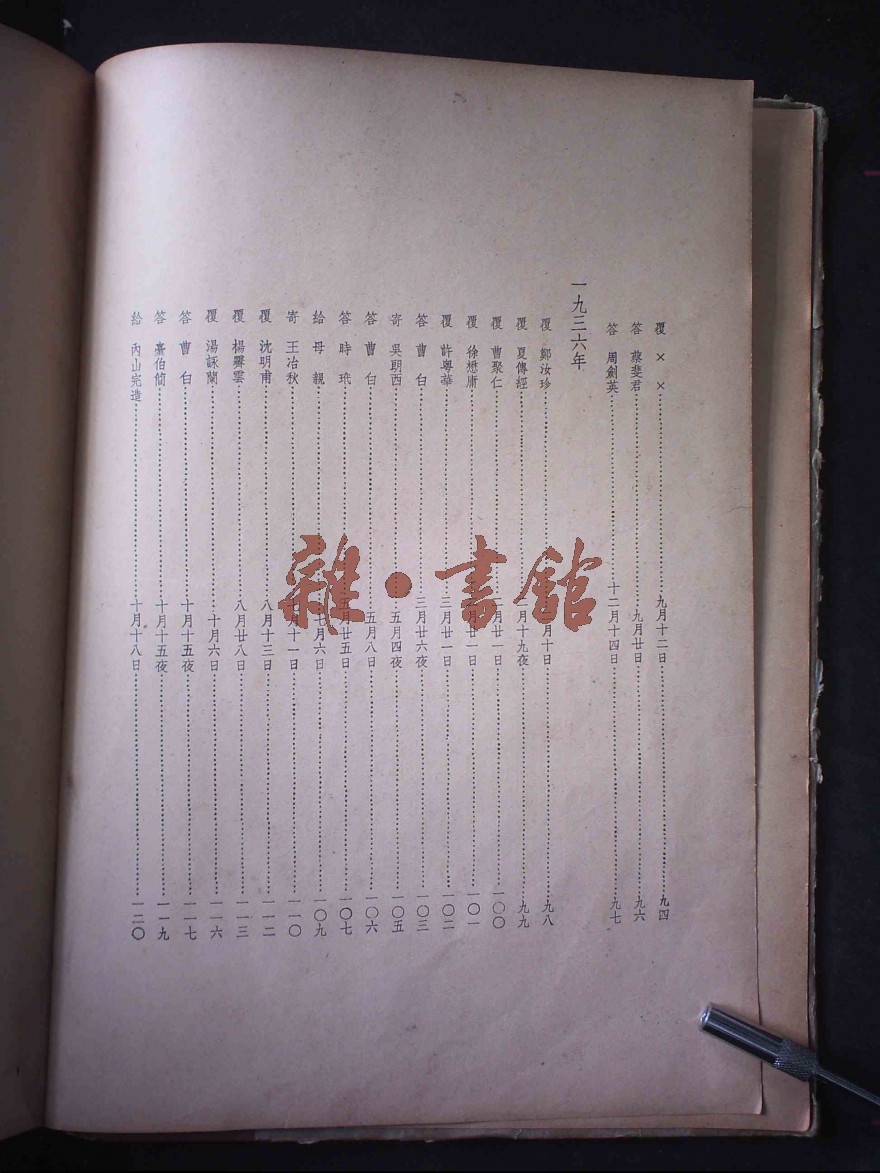 覆 × ×……九月十二日……九四
答 蔡斐君……九月廿日……九六
答 周劍英……十二月十四日……九七
一九三六年
覆 鄭汝珍……月十日……九八
覆 夏傳經……二月十九夜……九九
覆 曹聚仁……月廿一日……一〇〇
覆 徐懋庸……月廿一日……一〇一
覆 許粵華……三月廿一日……一〇二
答 曹 白……三月廿六夜……一〇三
寄 吳朗西……五月四夜……一〇五
答 曹 白……五月八日……一〇六
答 時 玳……五月廿五日……一〇七
給 母 親……七月六日……一〇九
寄 王冶秋……七月十一日……一一〇
覆 沈明甫……八月十三日……一一二
覆 楊霽雲……八月廿八日……一一三
覆 湯詠蘭……十月六日……一一六
答 曹 白……十月十五夜……一一七
答 臺伯簡……十月十五夜……一一九
給 內山完造……十月十八日……一二〇
雜·書館